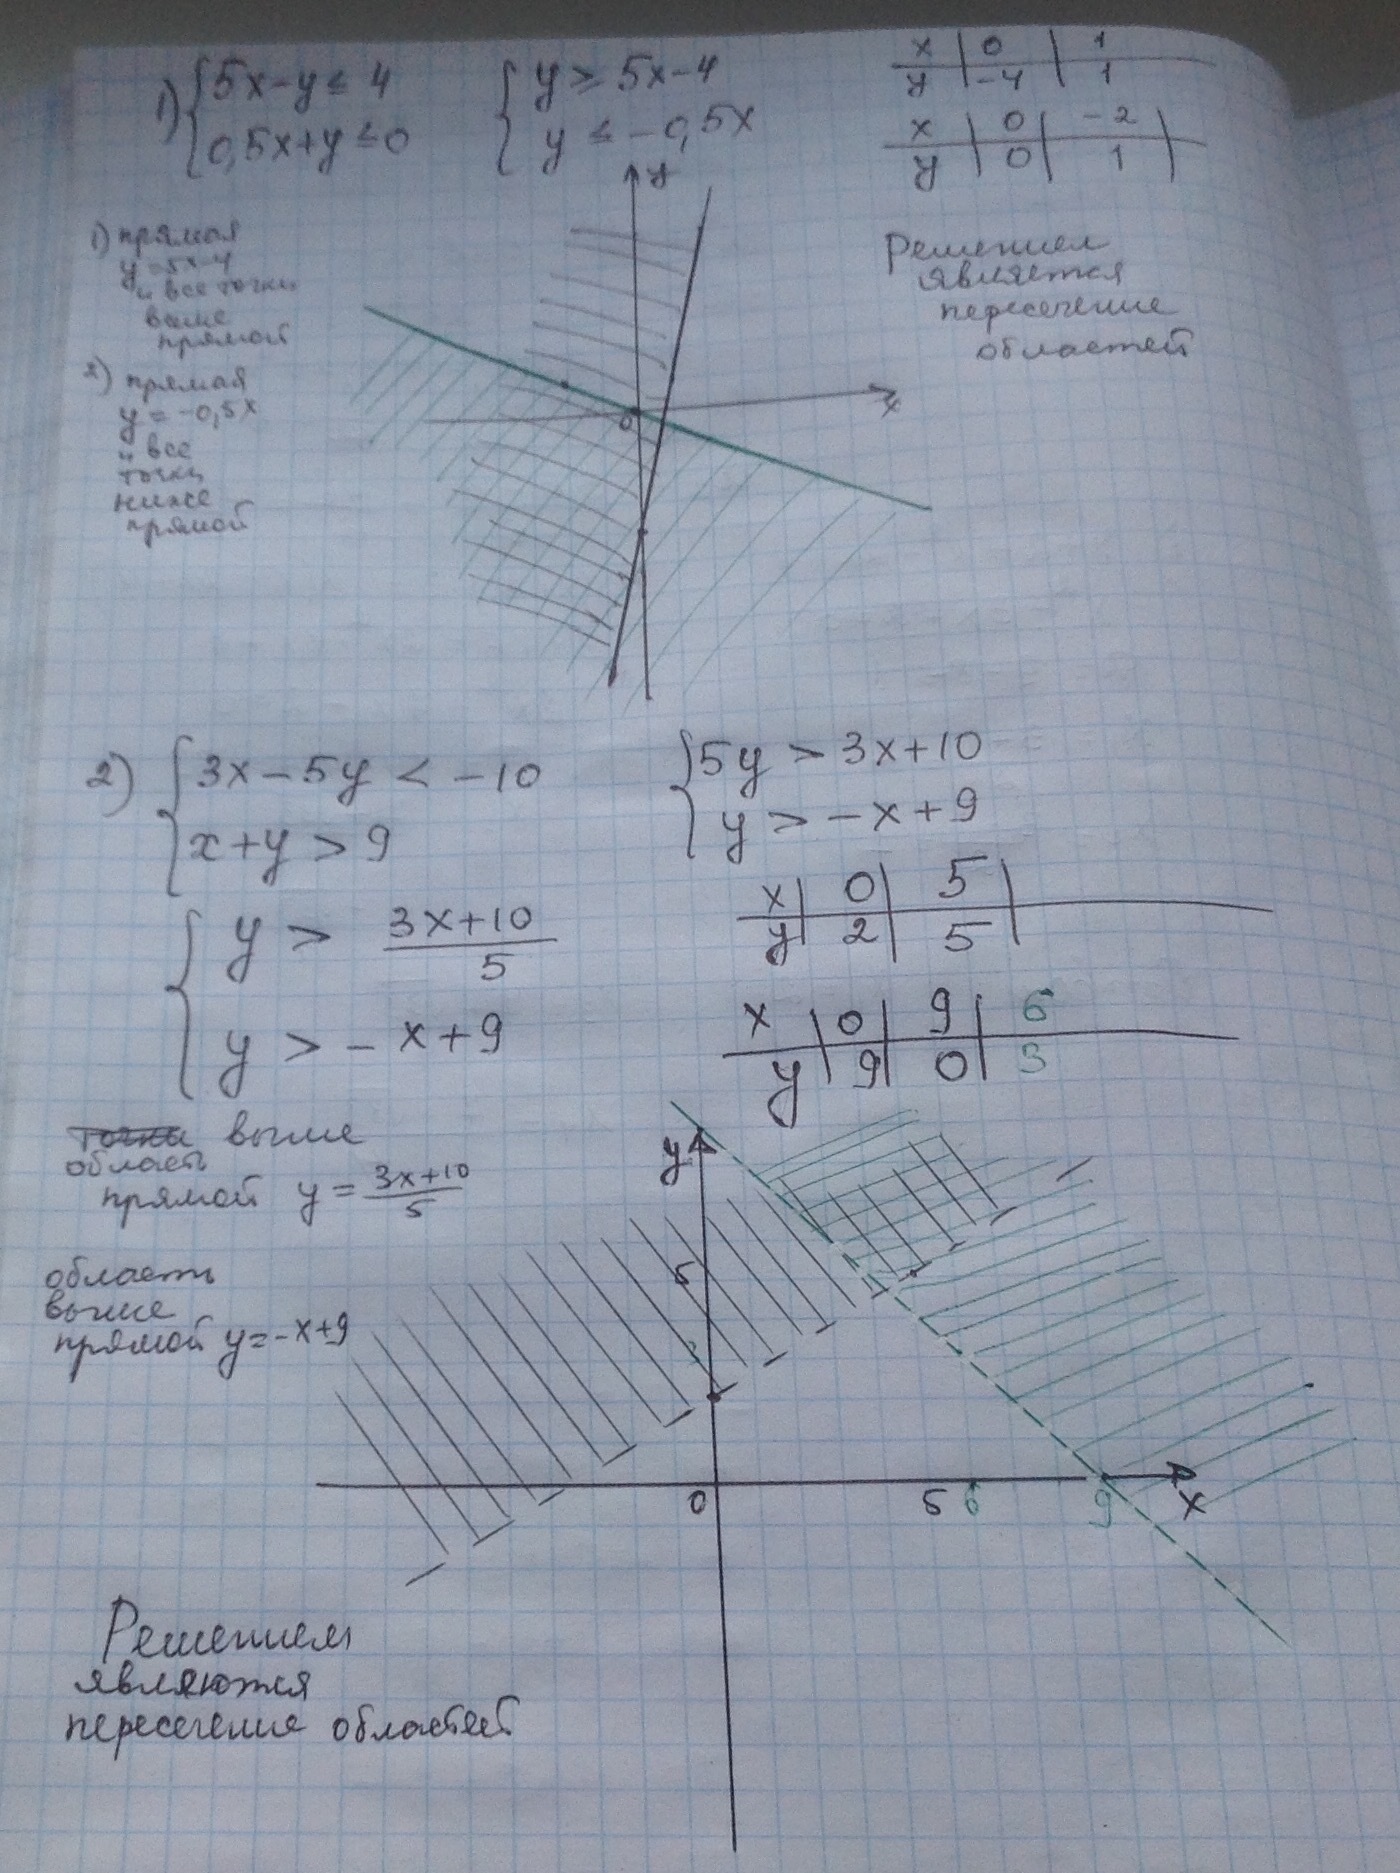 1) { 5x-y ≤ 4
0,5x+y ≤ 0
{ y ≥ 5x-4
y ≤ -0,5x
x | 0 | 1
y | -4 | 1
x | 0 | -2
y | 0 | 1
1) прямая
y=5x-4
и все точки
выше
прямой
2) прямая
y=-0,5x
и все
точки
ниже
прямой
y
x
0
Решением
является
пересечение
областей
2) { 3x-5y < -10
x+y > 9
{ 5y > 3x+10
y > -x+9
{ y > 3x+10
5
y > -x+9
x | 0 | 5
y | 2 | 5
x | 0 | 9 | 6
y | 9 | 0 | 3
точки выше
область
прямой y = 3x+10
5
область
выше
прямой y=-x+9
y
5
0
5 6 9 x
Решением
являются
пересечение областей